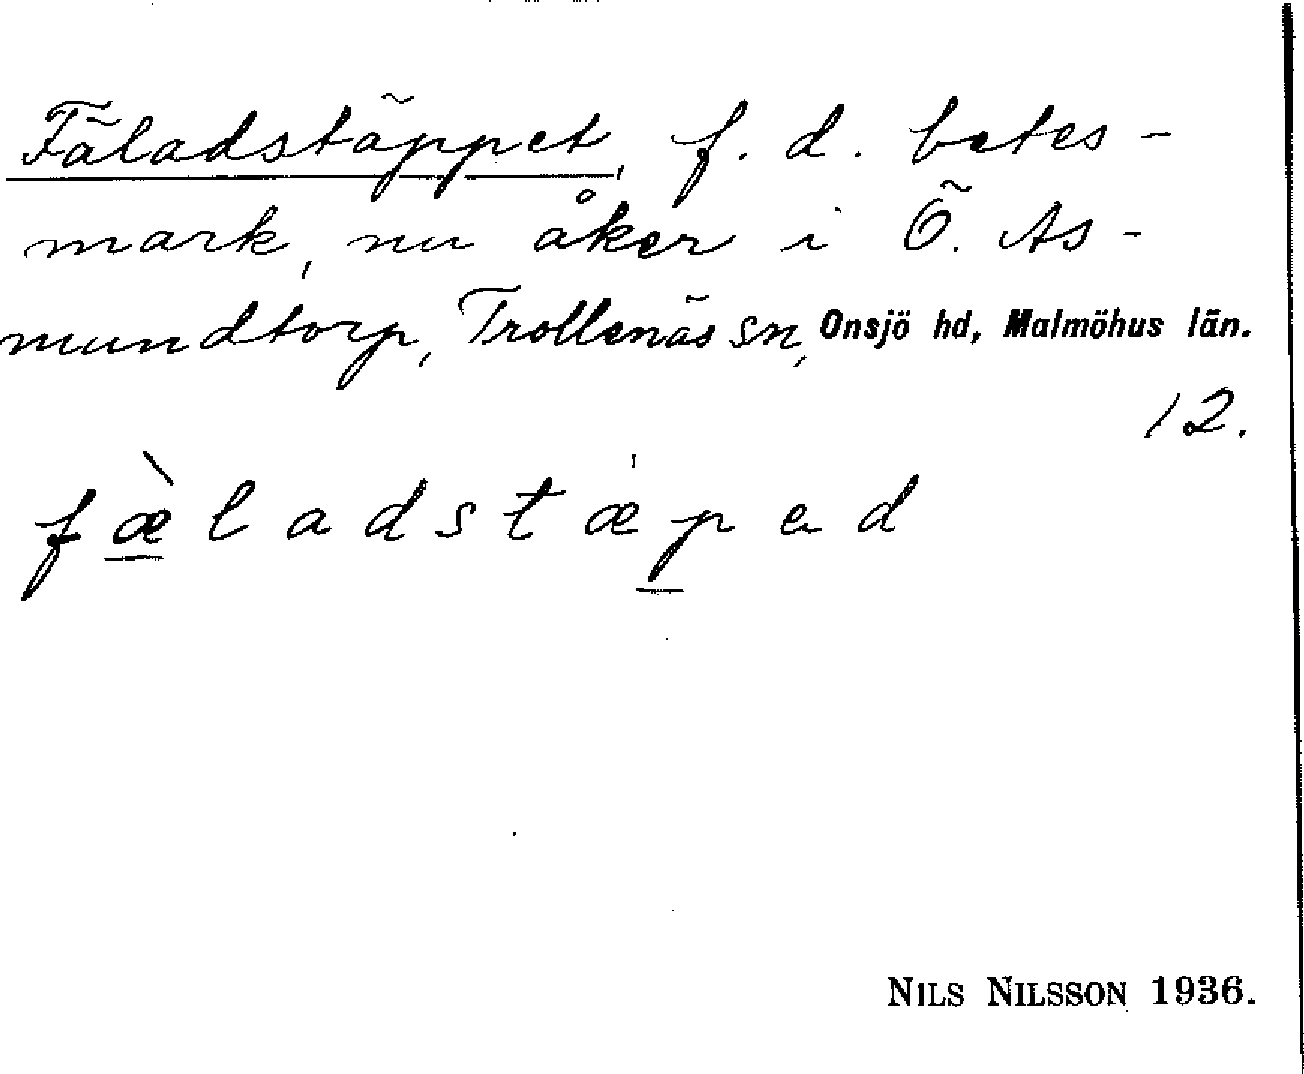 Fäladstäppet, f. d. betes-
mark, nu åker i Ö. As-
mundtorp, Trollenäs sn, Onsjö hd, Malmöhus län.
12.
fæ̀ladstæ'ped
NILS NILSSON 1936.